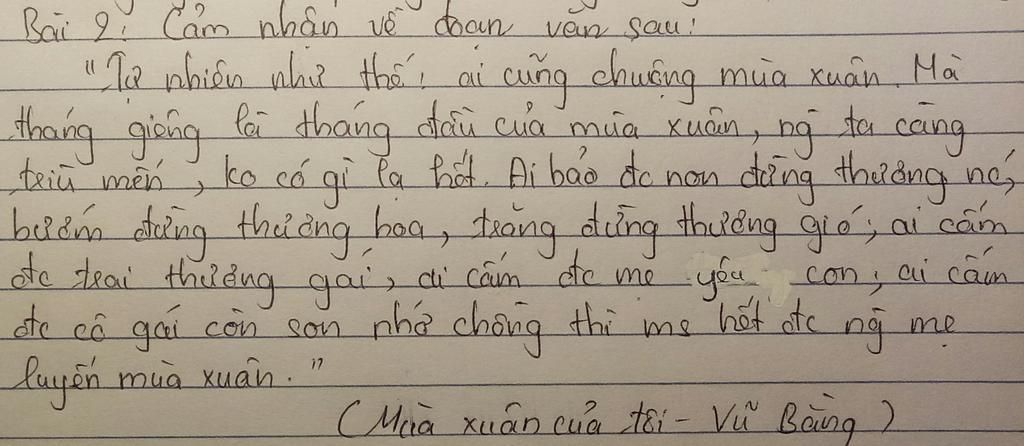 Bài 2: Cảm nhận về đoạn văn sau:
"Tự nhiên như thế, ai cũng chuộng mùa xuân. Mà
tháng giêng là tháng đầu của mùa xuân, ng ta càng
trìu mến, ko có gì lạ hết. Ai bảo đc non đừng thương nc,
bướm đừng thương hoa, trăng đừng thương gió; ai cấm
đc trai thương gái, ai cấm đc mẹ yêu con; ai cấm
đc cô gái còn son nhớ chồng thì ms hết đc ng mê
luyến mùa xuân."
(Mùa xuân của tôi - Vũ Bằng)